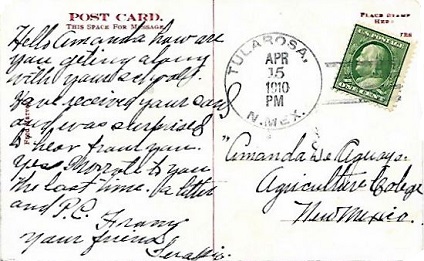 POST CARD.
THIS SPACE FOR MESSAGE
PLACE STAMP
HERE
Hello Amanda how are
you geting along
with your school.
Have received your card
and was surprised
to hear from you.
Yes I wrote to you
the last time. a letter
and P.C.
From
your friend
TULAROSA,
APR
15
1910
PM
N. MEX.
U.S. POSTAGE
Amanda De Aguayo
Agriculture College
New Mexico.